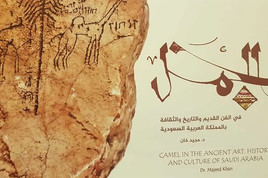 الجمل
في الفن القديم والتاريخ والثقافة
بالمملكة العربية السعودية
د. مجيد خان
CAMEL IN THE ANCIENT ART, HISTORY
AND CULTURE OF SAUDI ARABIA
Dr. Majeed Khan